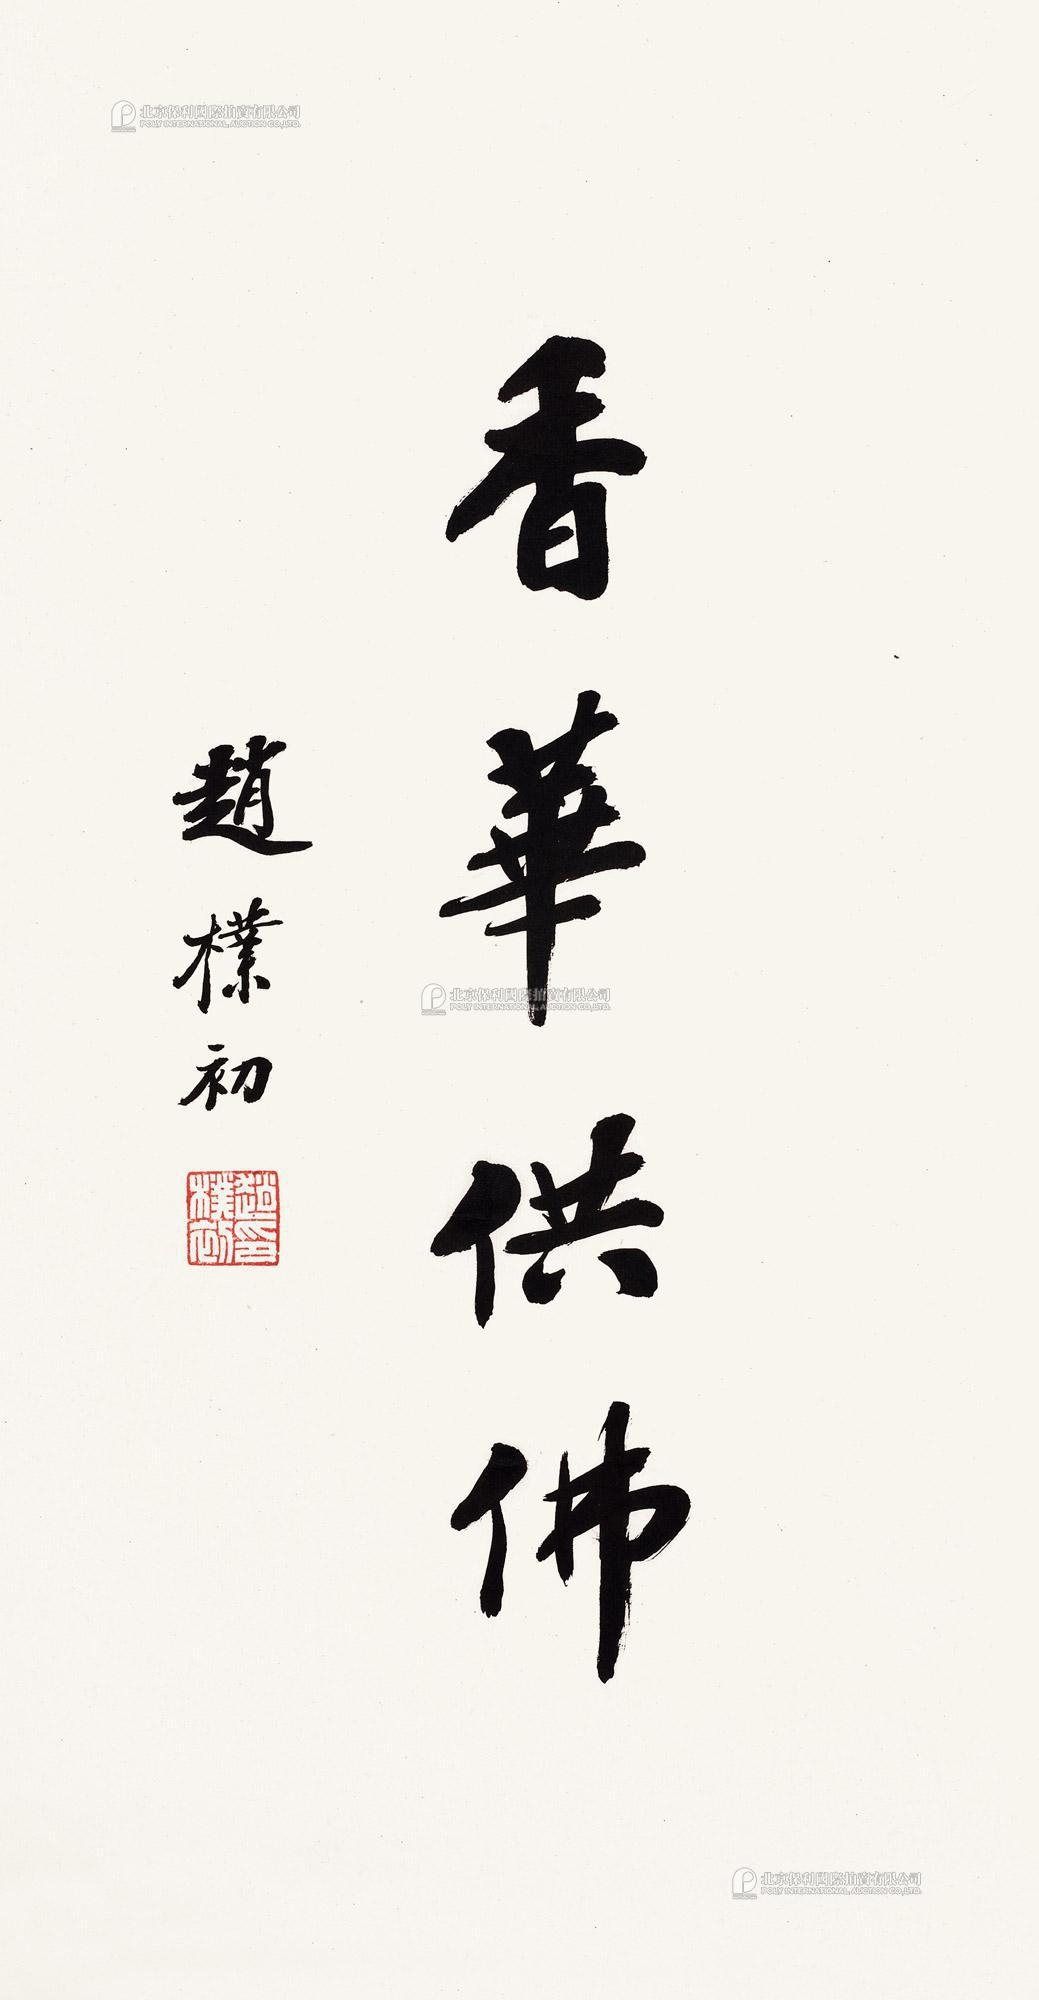 北京保利國際拍賣有限公司
POLY INTERNATIONAL AUCTION CO.,LTD.
香華供佛
趙樸初
趙樸初印
北京保利國際拍賣有限公司
POLY INTERNATIONAL AUCTION CO.,LTD.
北京保利國際拍賣有限公司
POLY INTERNATIONAL AUCTION CO.,LTD.